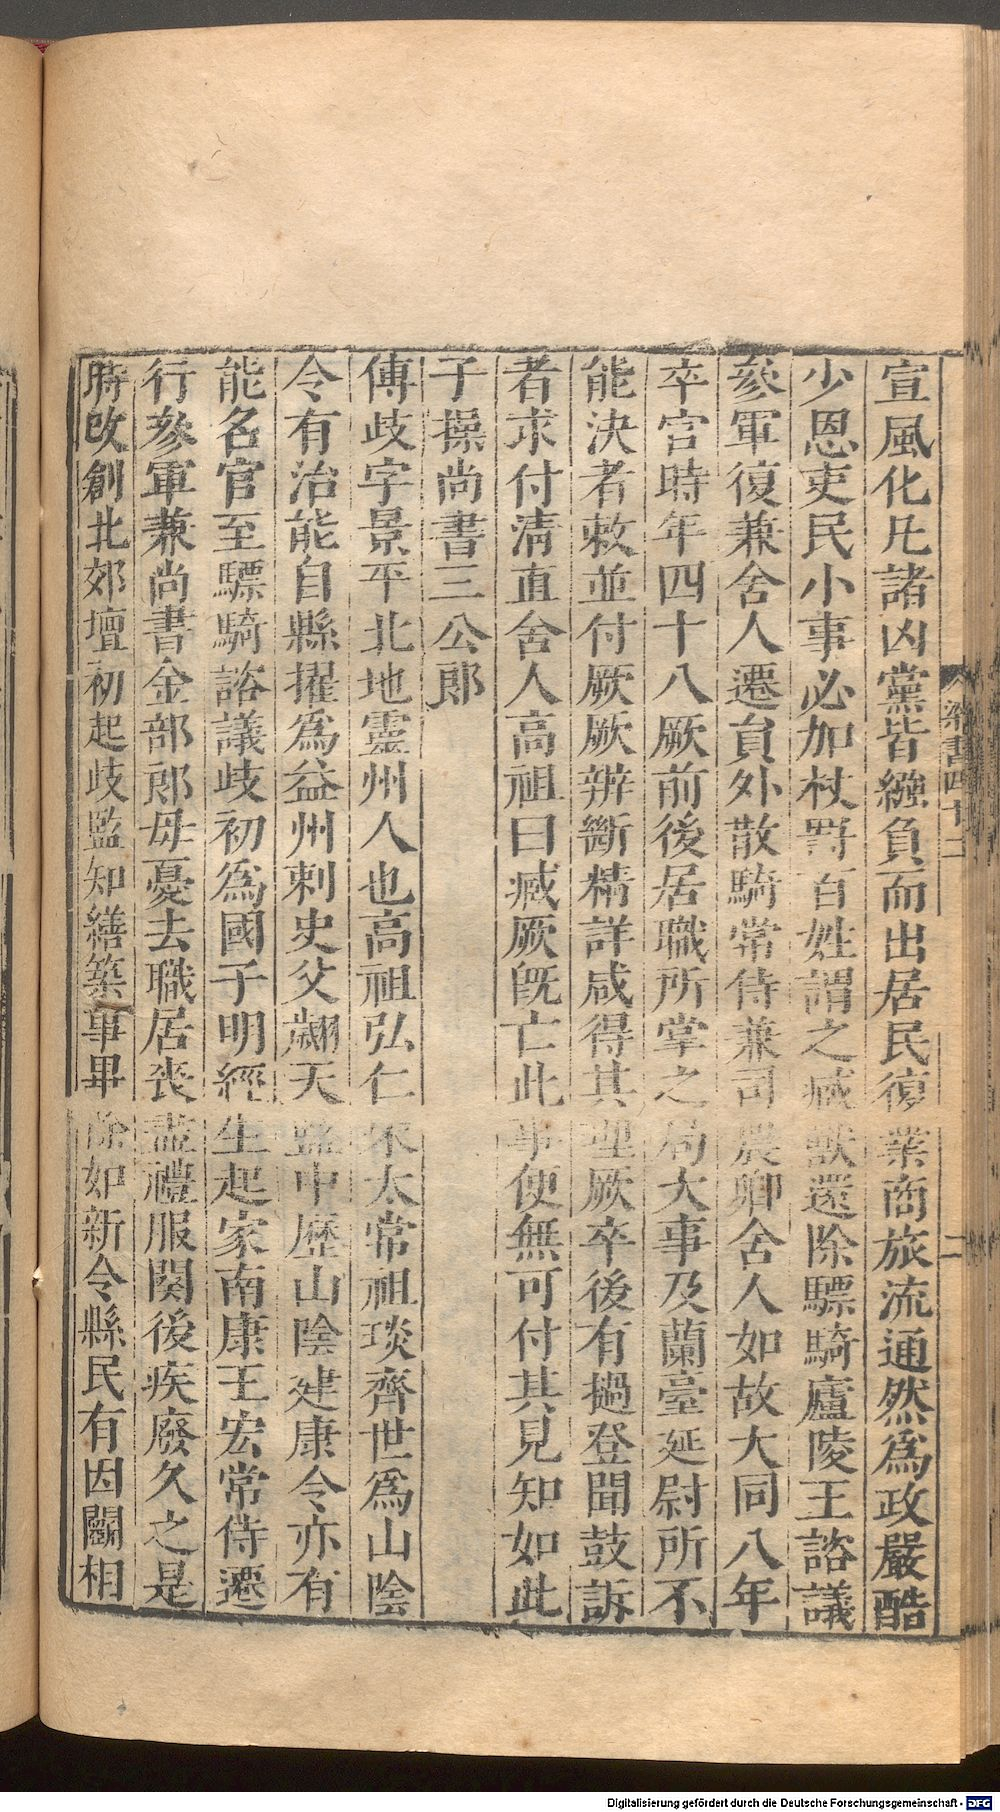 宣風化凡諸凶黨皆繈負而出居民復業商旅流通然爲政嚴酷
少恩吏民小事必加杖罰百姓謂之臧獸還除驃騎廬陵王諮議
參軍復兼舍人遷負外散騎常侍兼司農卿舍人如故大同八年
卒官時年四十八厥前後居職所掌之局大事及蘭臺延尉所不
能決者敕並付厥厥辨斷精詳咸得其理厥卒後有撾登聞鼓訴
者求付清直舍人高祖曰臧厥旣亡此事便無可付其見知如此
子操尚書三公郎
傅歧字景平北地靈州人也高祖弘仁宋太常祖琰齊世爲山陰
令有治能自縣擢爲益州刺史父翽天監中歷山陰建康令亦有
能名官至驃騎諮議歧初爲國子明經生起家南康王宏常侍遷
行參軍兼尚書金部郎母憂去職居喪盡禮服闋後疾廢久之是
時改創北郊壇初起歧監知繕築事畢除如新令縣民有因鬭相
梁書四十二
二
Digitalisierung gefördert durch die Deutsche Forschungsgemeinschaft - DFG